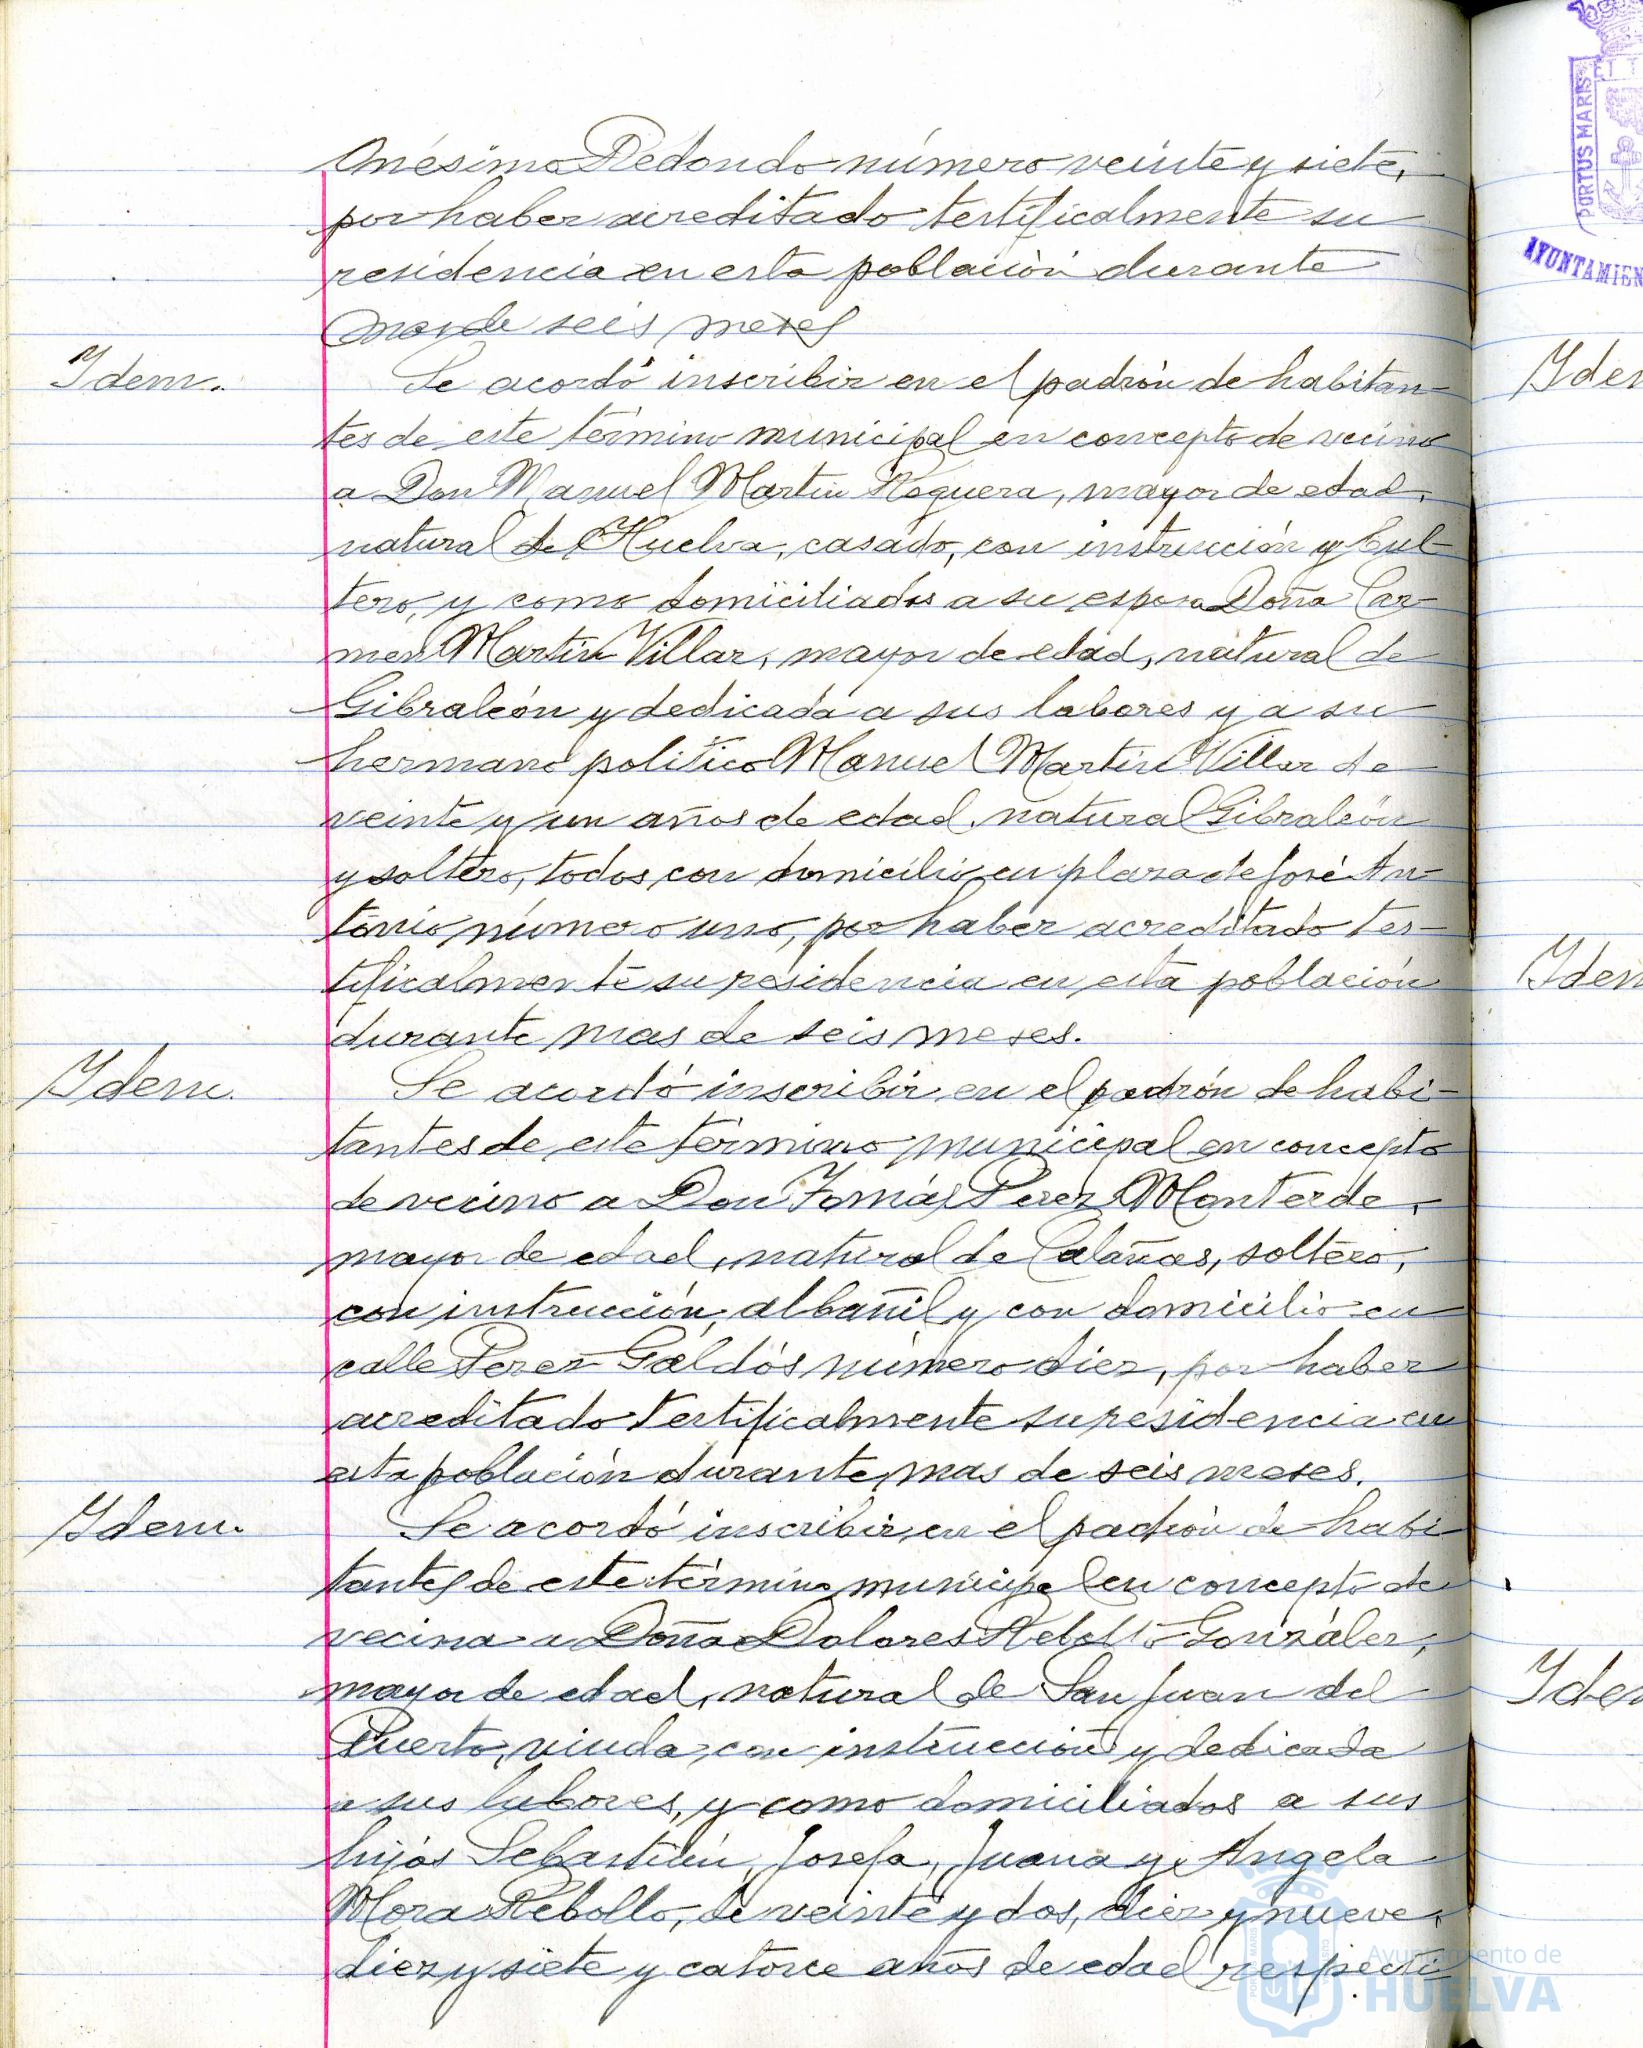 Onésimo Redondo número veinte y siete,
por haber acreditado testificalmente su
residencia en esta población durante
mas de seis meses
Idem.
Se acordó inscribir en el padrón de habitan-
tes de este término municipal en concepto de vecino
a Don Manuel Martin Noguera, mayor de edad,
natural de Huelva, casado, con instrucción y
tero, y como domiciliados a su esposa Doña Car-
men Martin Villar, mayor de edad, natural de
Gibraleón y dedicada a sus labores y a su
hermano politico Manuel Martin Villar de
veinte y un años de edad, natural Gibraleón
y soltero, todos con domicilio en plaza de José An-
tonio número uno, por haber acreditado tes-
tificalmente su residencia en esta población
durante mas de seis meses.
Idem.
Se acordó inscribir en el padrón de habi-
tantes de este término municipal en concepto
de vecino a Don Tomás Perez Monterde,
mayor de edad, natural de Calañas, soltero,
con instrucción, albañil y con domicilio en
calle Perez Galdós número diez, por haber
acreditado testificalmente su residencia en
esta población durante mas de seis meses.
Idem.
Se acordó inscribir en el padrón de habi-
tantes de este término municipal en concepto de
vecina a Doña Dolores Rebollo González,
mayor de edad, natural de San Juan del
Puerto, viuda, con instrucción y dedicada
a sus labores, y como domiciliados a sus
hijos Sebastián, Josefa, Juana y Angela
Mora Rebollo, de veinte y dos, diez y nueve,
diez y siete y catorce años de edad respecti-
PORTUS MARIS
AYUNTAMIEN
Idem
Idem
Idem
Ayuntamiento de
HUELVA